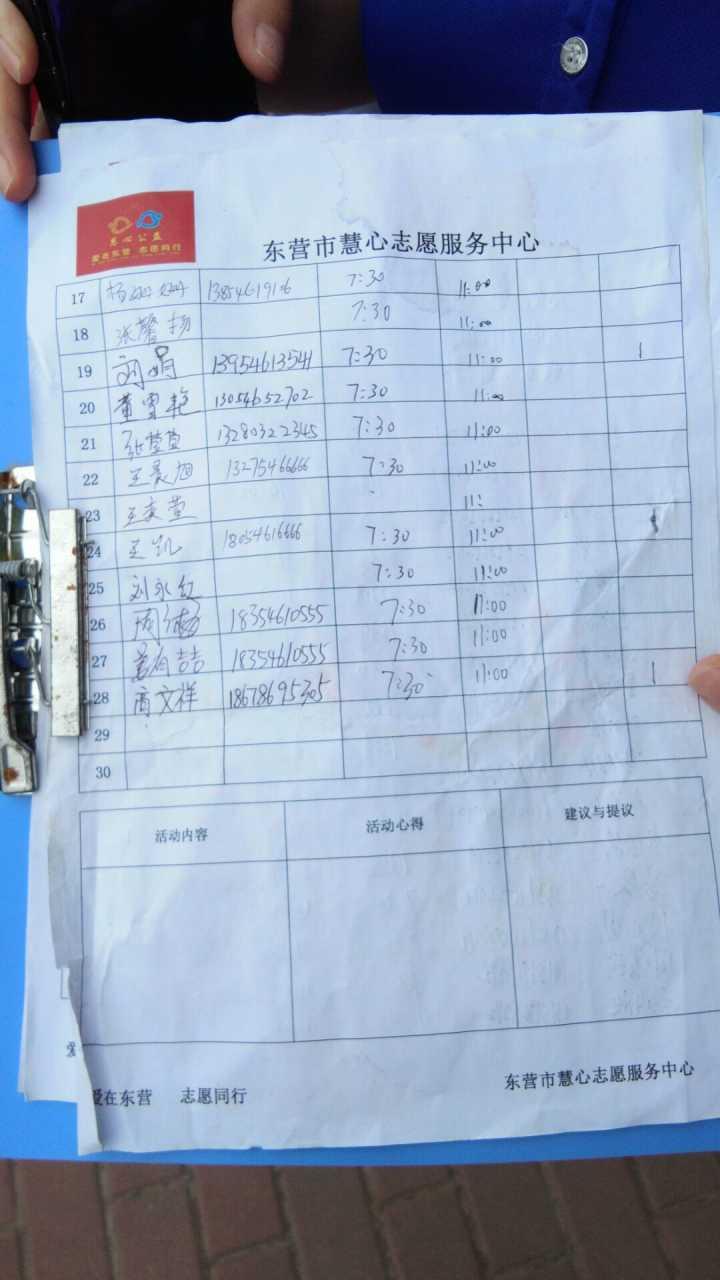 慧心公益
爱在东营 志愿同行
东营市慧心志愿服务中心
17 杨 7:30 11:00
18 张馨扬 7:30 11:00
19 刘娟 13954613541 7:30 11:00 1
20 董雪艳 13054652702 7:30 11:00
21 张莹莹 13280322345 7:30 11:00
22 王晨旭 13275466666 7:30 11:00
23 王 莹 11:
24 王凯 18054616666 7:30 11:00
25 刘永红 7:30 11:00
26 周 杨 18354610555 7:30 11:00
27 18354610555 7:30 11:00
28 商文祥 18678695305 7:30 11:00 1
29
30
活动内容 活动心得 建议与提议
爱在东营 志愿同行 东营市慧心志愿服务中心